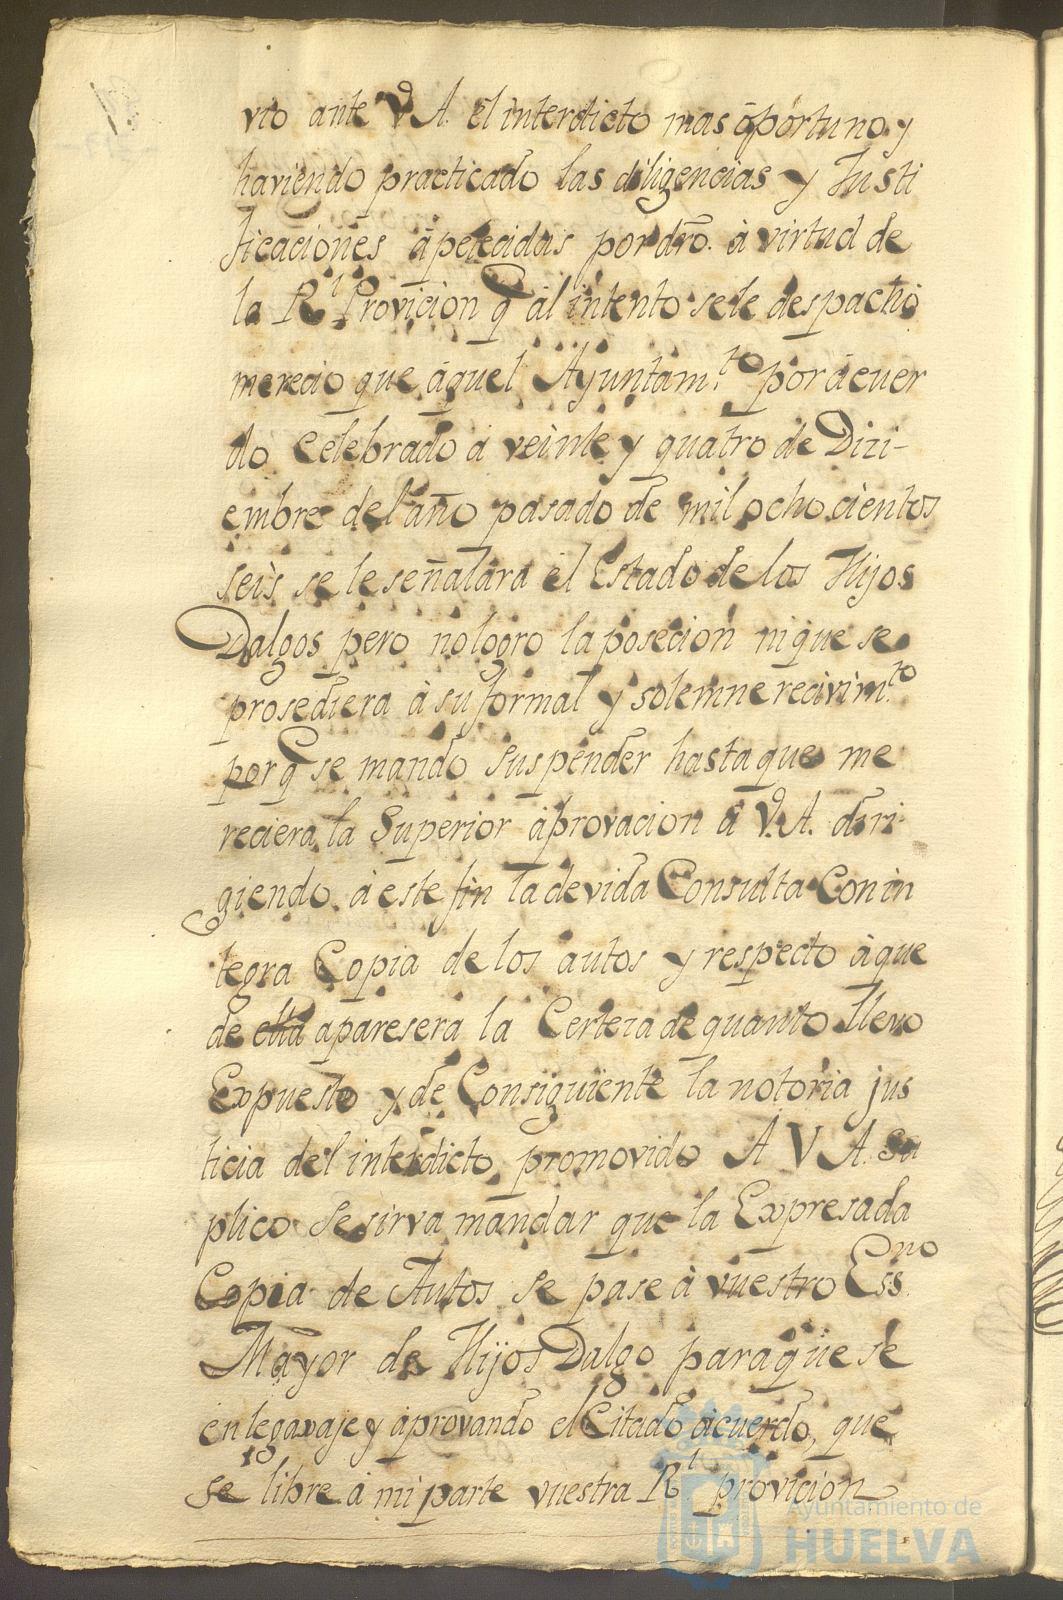 vio ante V. A. el interdicto mas oportuno y
haviendo practicado las diligencias y Justi
ficaciones apetecidas por dro. à virtud de
la Rl. Provicion q al intento se le despachò
merecio que aquel Ayuntam.to por acuer
do Celebrado à veinte y quatro de Dizi-
embre del año pasado de mil ochocientos
seis se le señalara el Estado de los Hijos
Dalgos pero no logro la posecion ni que se
prosediera à su formal y solemne recivim.to
porq se mando Suspender hasta que me
reciera la Superior aprovacion à V. A. diri-
giendo à este fin la devida Consulta Con in
tegra Copia de los autos y respecto à que
de ella aparesera la Certeza de quanto llevo
Expuesto y de Consiguiente la notoria jus
ticia del interdicto promovido A V A. Su
plico Se sirva mandar que la Expresada
Copia de Autos se pase à vuestro Ess.no
Mayor de Hijos Dalgo para que se
enlegaxaje y aprovando el Citado acuerdo, que
se libre à mi parte vuestra Rl provicion
Ayuntamiento de
HUELVA